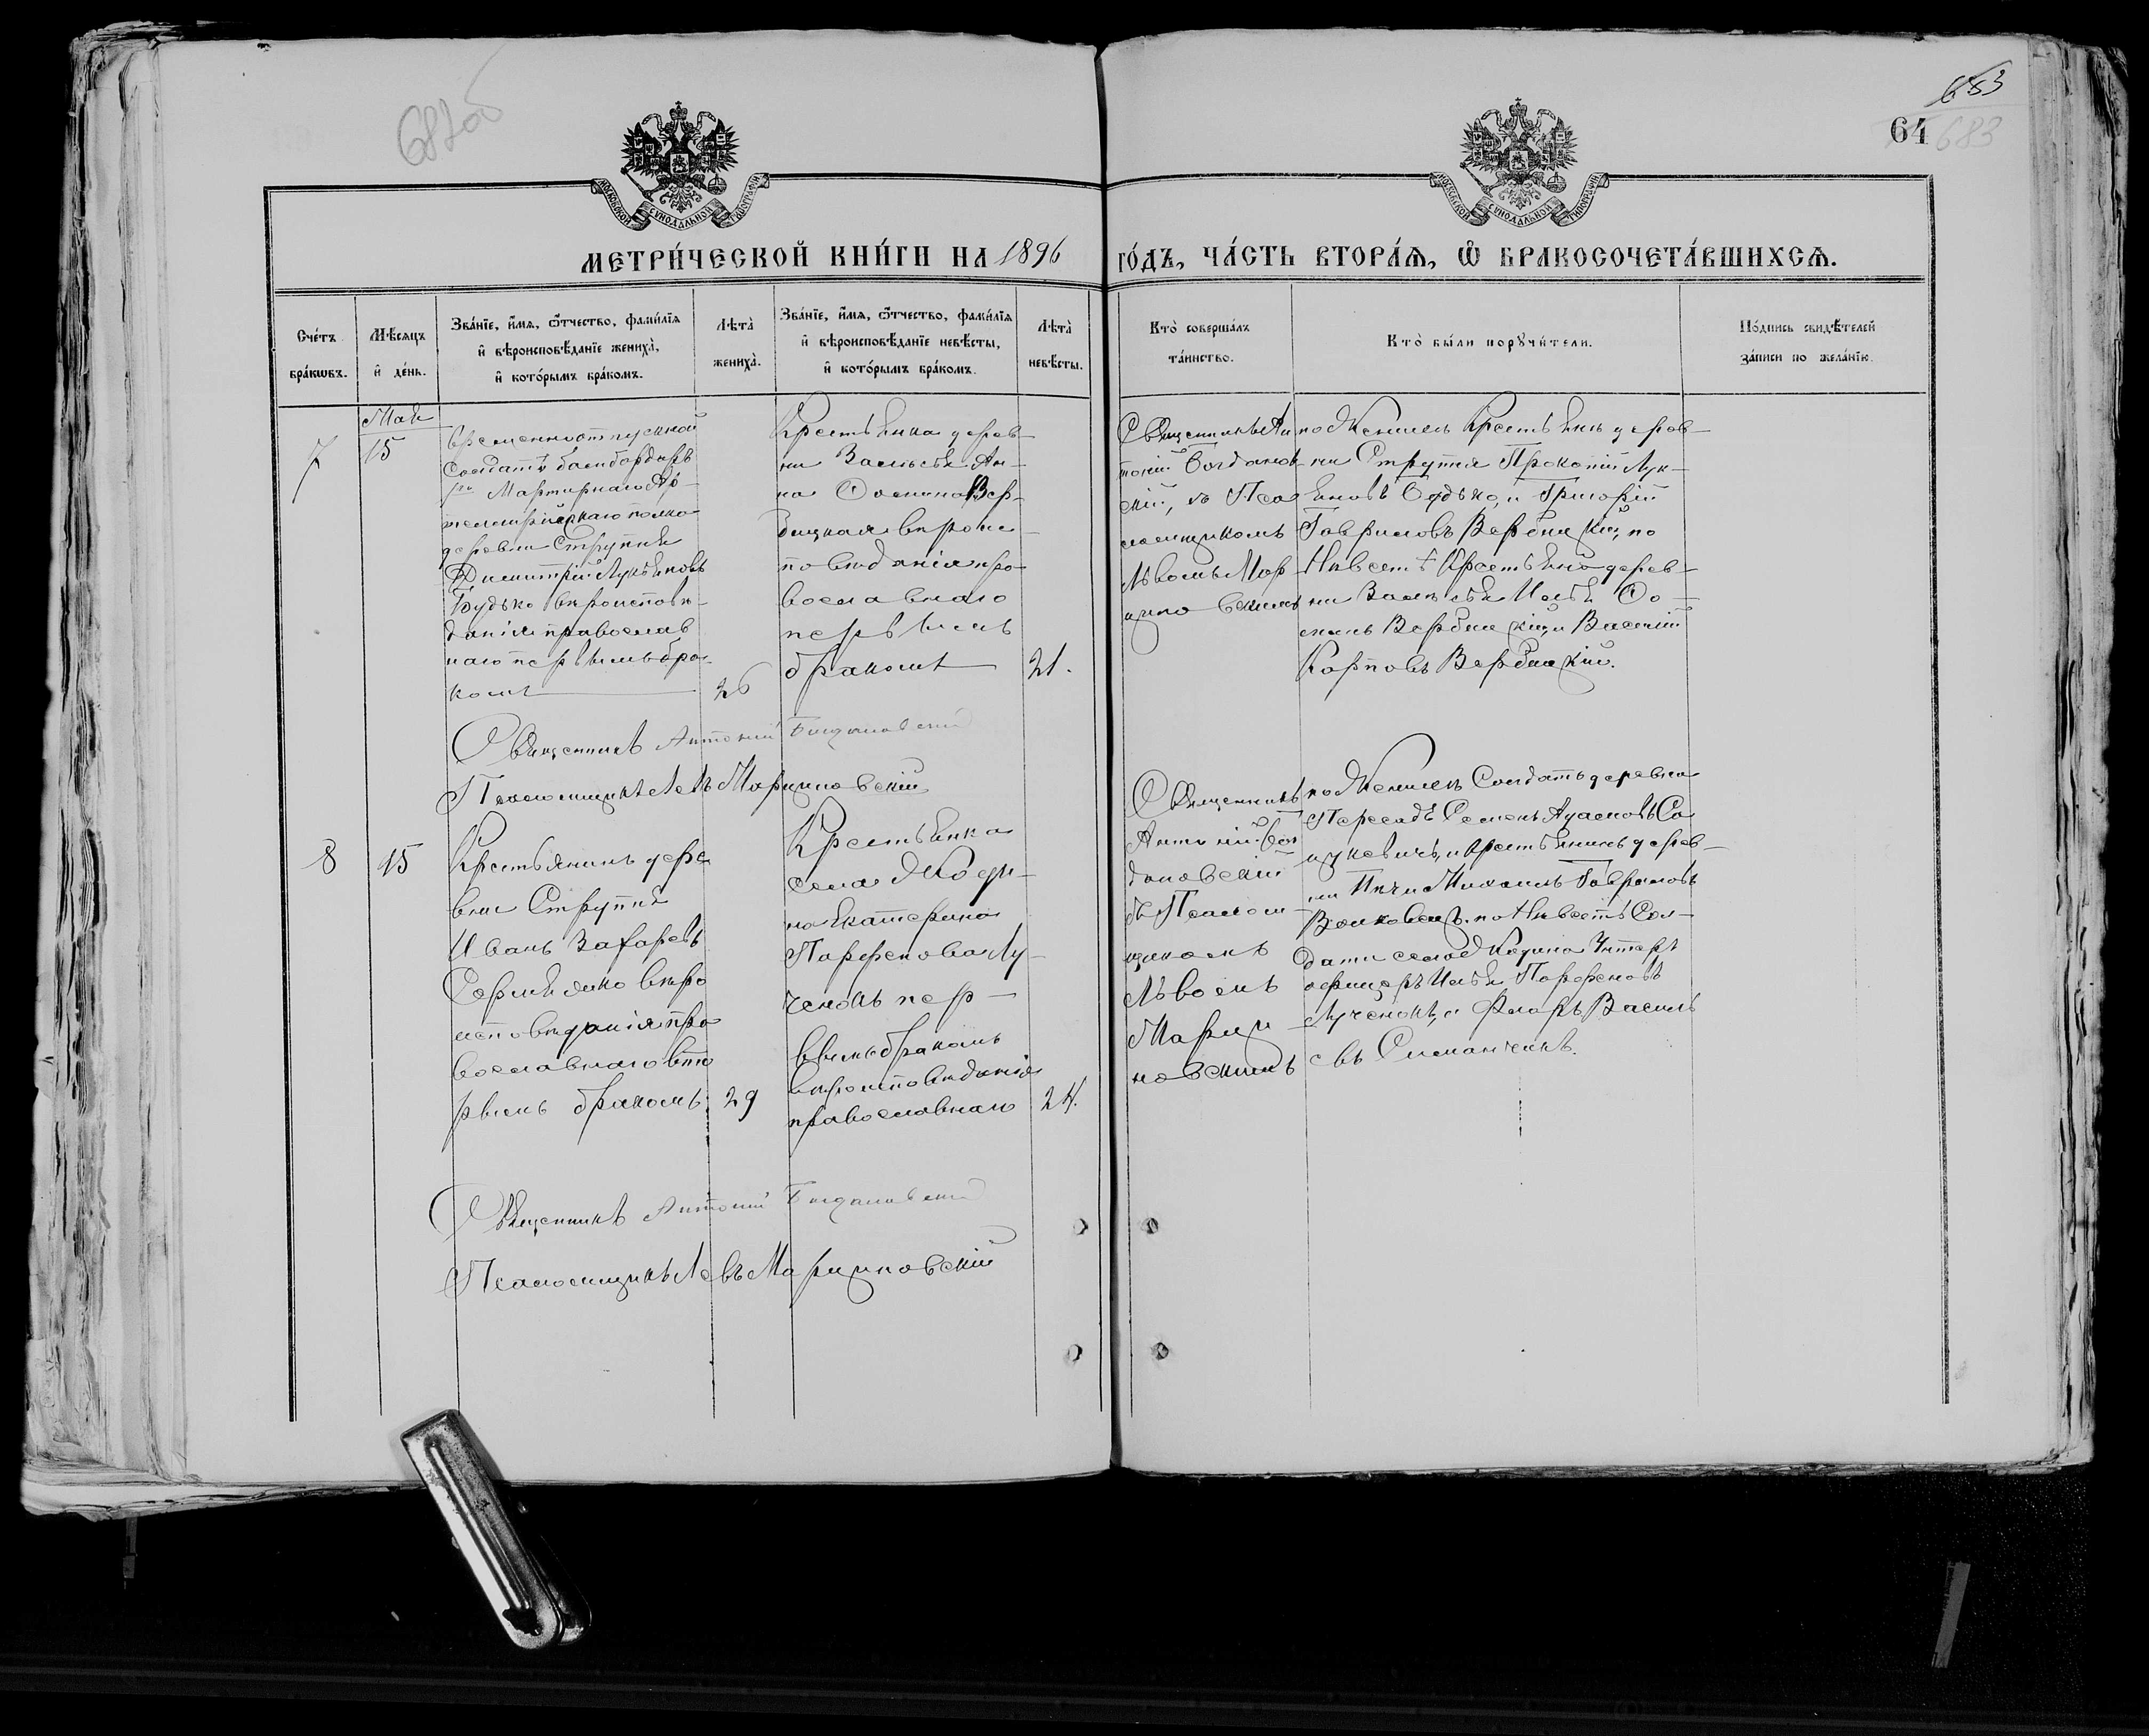 682об
683
64 683
МОСКОВСКОЙ СУНОДАЛЬНОЙ ТИПОГРАФІИ
МОСКОВСКОЙ СУНОДАЛЬНОЙ ТИПОГРАФІИ
МЕТРИ́ЧЕСКОЙ КНИ́ГИ НА 1896 ГО́ДЪ, ЧА́СТЬ ВТОРА́Ѧ, Ѽ БРАКОСОЧЕТА́ВШИХСѦ.
Сче́тъ
бра́кѡвъ.
Мѣ́сѧцъ
и҆ де́нь.
Зва́нїе, и҆́мѧ, ѻ҆́тчество, фами́лїѧ
и҆ вѣроисповѣ́данїе жениха̀,
и҆ кото́рымъ бра́комъ.
Лѣта̀
жениха̀.
Зва́нїе, и҆́мѧ, ѻ҆́тчество, фами́лїѧ
и҆ вѣроисповѣ́данїе невѣ́сты,
и҆ кото́рымъ бра́комъ.
Лѣта̀
невѣ́сты.
Кто̀ соверша́лъ
та́инство.
Кто̀ бы́ли порꙋчи́тели.
По́дпись свидѣ́телей
за́писи по жела́нїю.
Май
7
15
Временноотпускной
солдатъ бомбардиръ
Мартирнаго Ар-
тиллерійскаго полка
деревни Струпня
Димитрій Лукьяновъ
Будько вѣроисповѣ-
данія православ
наго первымъ бра-
комъ
26
Крестьянка дерев-
ни Ан-
на Осипова Вер-
бицкая вѣроис-
повѣданія пра-
вославнаго
первымъ
бракомъ
21.
Священникъ Ан
тоній Богданов-
скій, съ Пса
ломщикомъ
Львомъ Мар-
циновскимъ
по Женихѣ Крестьянинъ дерев-
ни Струпня Прокопій Лук-
яновъ Будько, и Григорій
Гавриловъ Вербицкій, по
Невѣстѣ Крестьяне дерев-
ни Илья Ос-
иповъ Вербицкій, и Василій
Карповъ Вербицкій.
Священникъ Антоній Богдановскій
Псаломщикъ Левъ Марциновскій
8
15
Крестьянинъ дере
вни Струпня
Иванъ Захаровъ
вѣро
исповѣданія пра
вославнаго вто
рымъ бракомъ.
29
Крестьянка
села
на Екатерина
Парфенова Лу-
ченокъ пер-
вымъ бракомъ
вѣроисповѣданія
православнаго
24.
Священникъ
Антоній Бог
дановскій
съ Псалом-
щикомъ
Львомъ
Марци-
новскимъ
по Женихѣ Солдатъ деревни
Пересадъ Семенъ Адамовъ Са
цукевичъ, и Крестьянинъ дерев-
ни Михаилъ Гавриловъ
Волковецъ. по Невѣстѣ Сол-
даты села Унтеръ
офицеръ Илья Парфеновъ
Лученокъ, и Флоръ Василь
евъ Симанчикъ.
Священникъ Антоній Богдановскій
Псаломщикъ Левъ Марциновскій